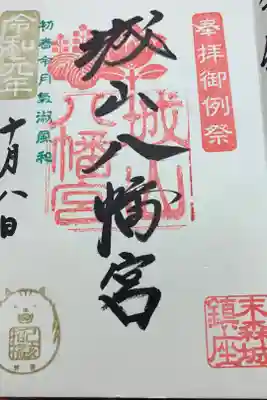 奉拝御例祭
末森城
鎮座
城山八幡宮
城山
八幡宮
初春令月氣淑風和
令和元年
十月八日